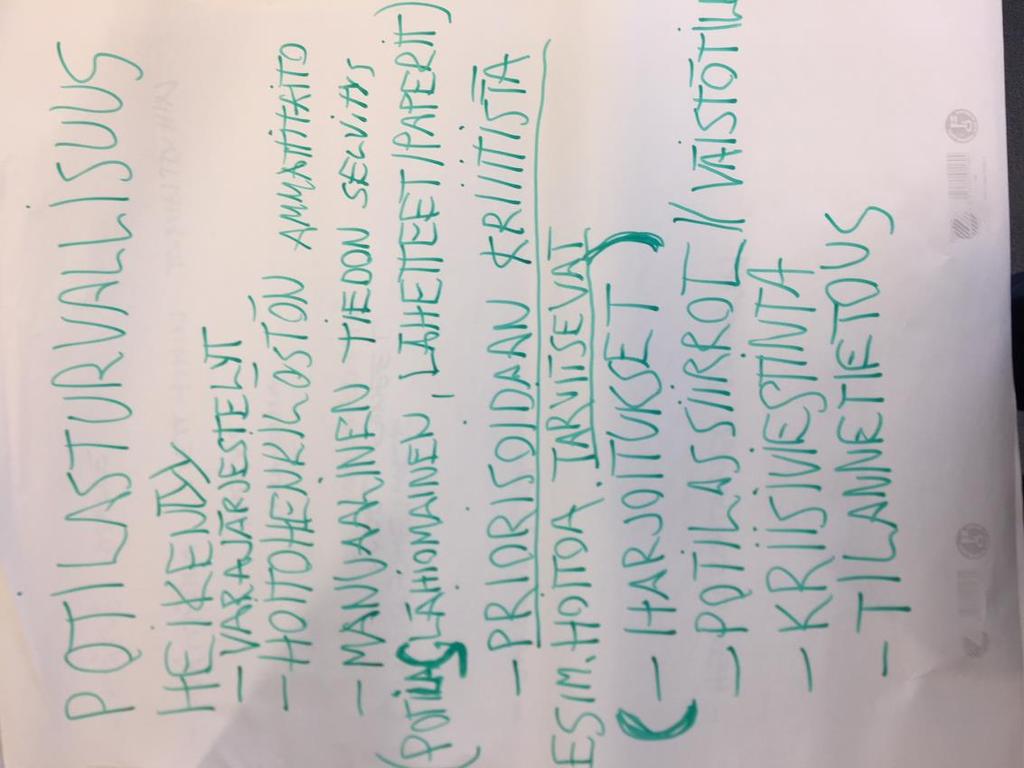 POTILASTURVALLISUUS
HEIKENTYY
- VARAJÄRJESTELYT
- HOITOHENKILÖSTÖN AMMATTITAITO
- MANUAALINEN TIEDON SELVITYS
(POTILAS, LÄHIOMAINEN, LÄHETTEET/PAPERIT)
- PRIORISOIDAAN KRIITTISTÄ
ESIM. HOITOA TARVITSEVAT
(- HARJOITUKSET)
- POTILASSIIRROT // VÄISTÖTIL
- KRIISIVIESTINTÄ
- TILANNETIETOUS